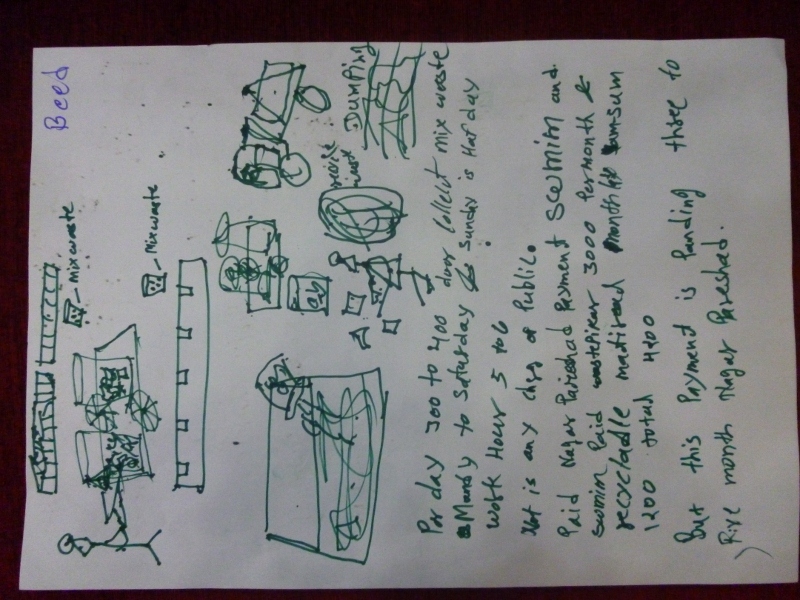 Beed
mixwaste
Mixwaste
Dumping
waste
Per day 300 to 400 door collect mix waste
Manday to Saturday & Sunday is Harday
work Hour 5 to 6
Not is any chrg of Public.
Paid Nagar Pareshad Payment Swmim and
Swmim Paid wastePicar 3000 Permonth &
recycladle matiread month sum
1200 total 4400
But this Payment is Panding three to
Rive month Nagar Pareshad.